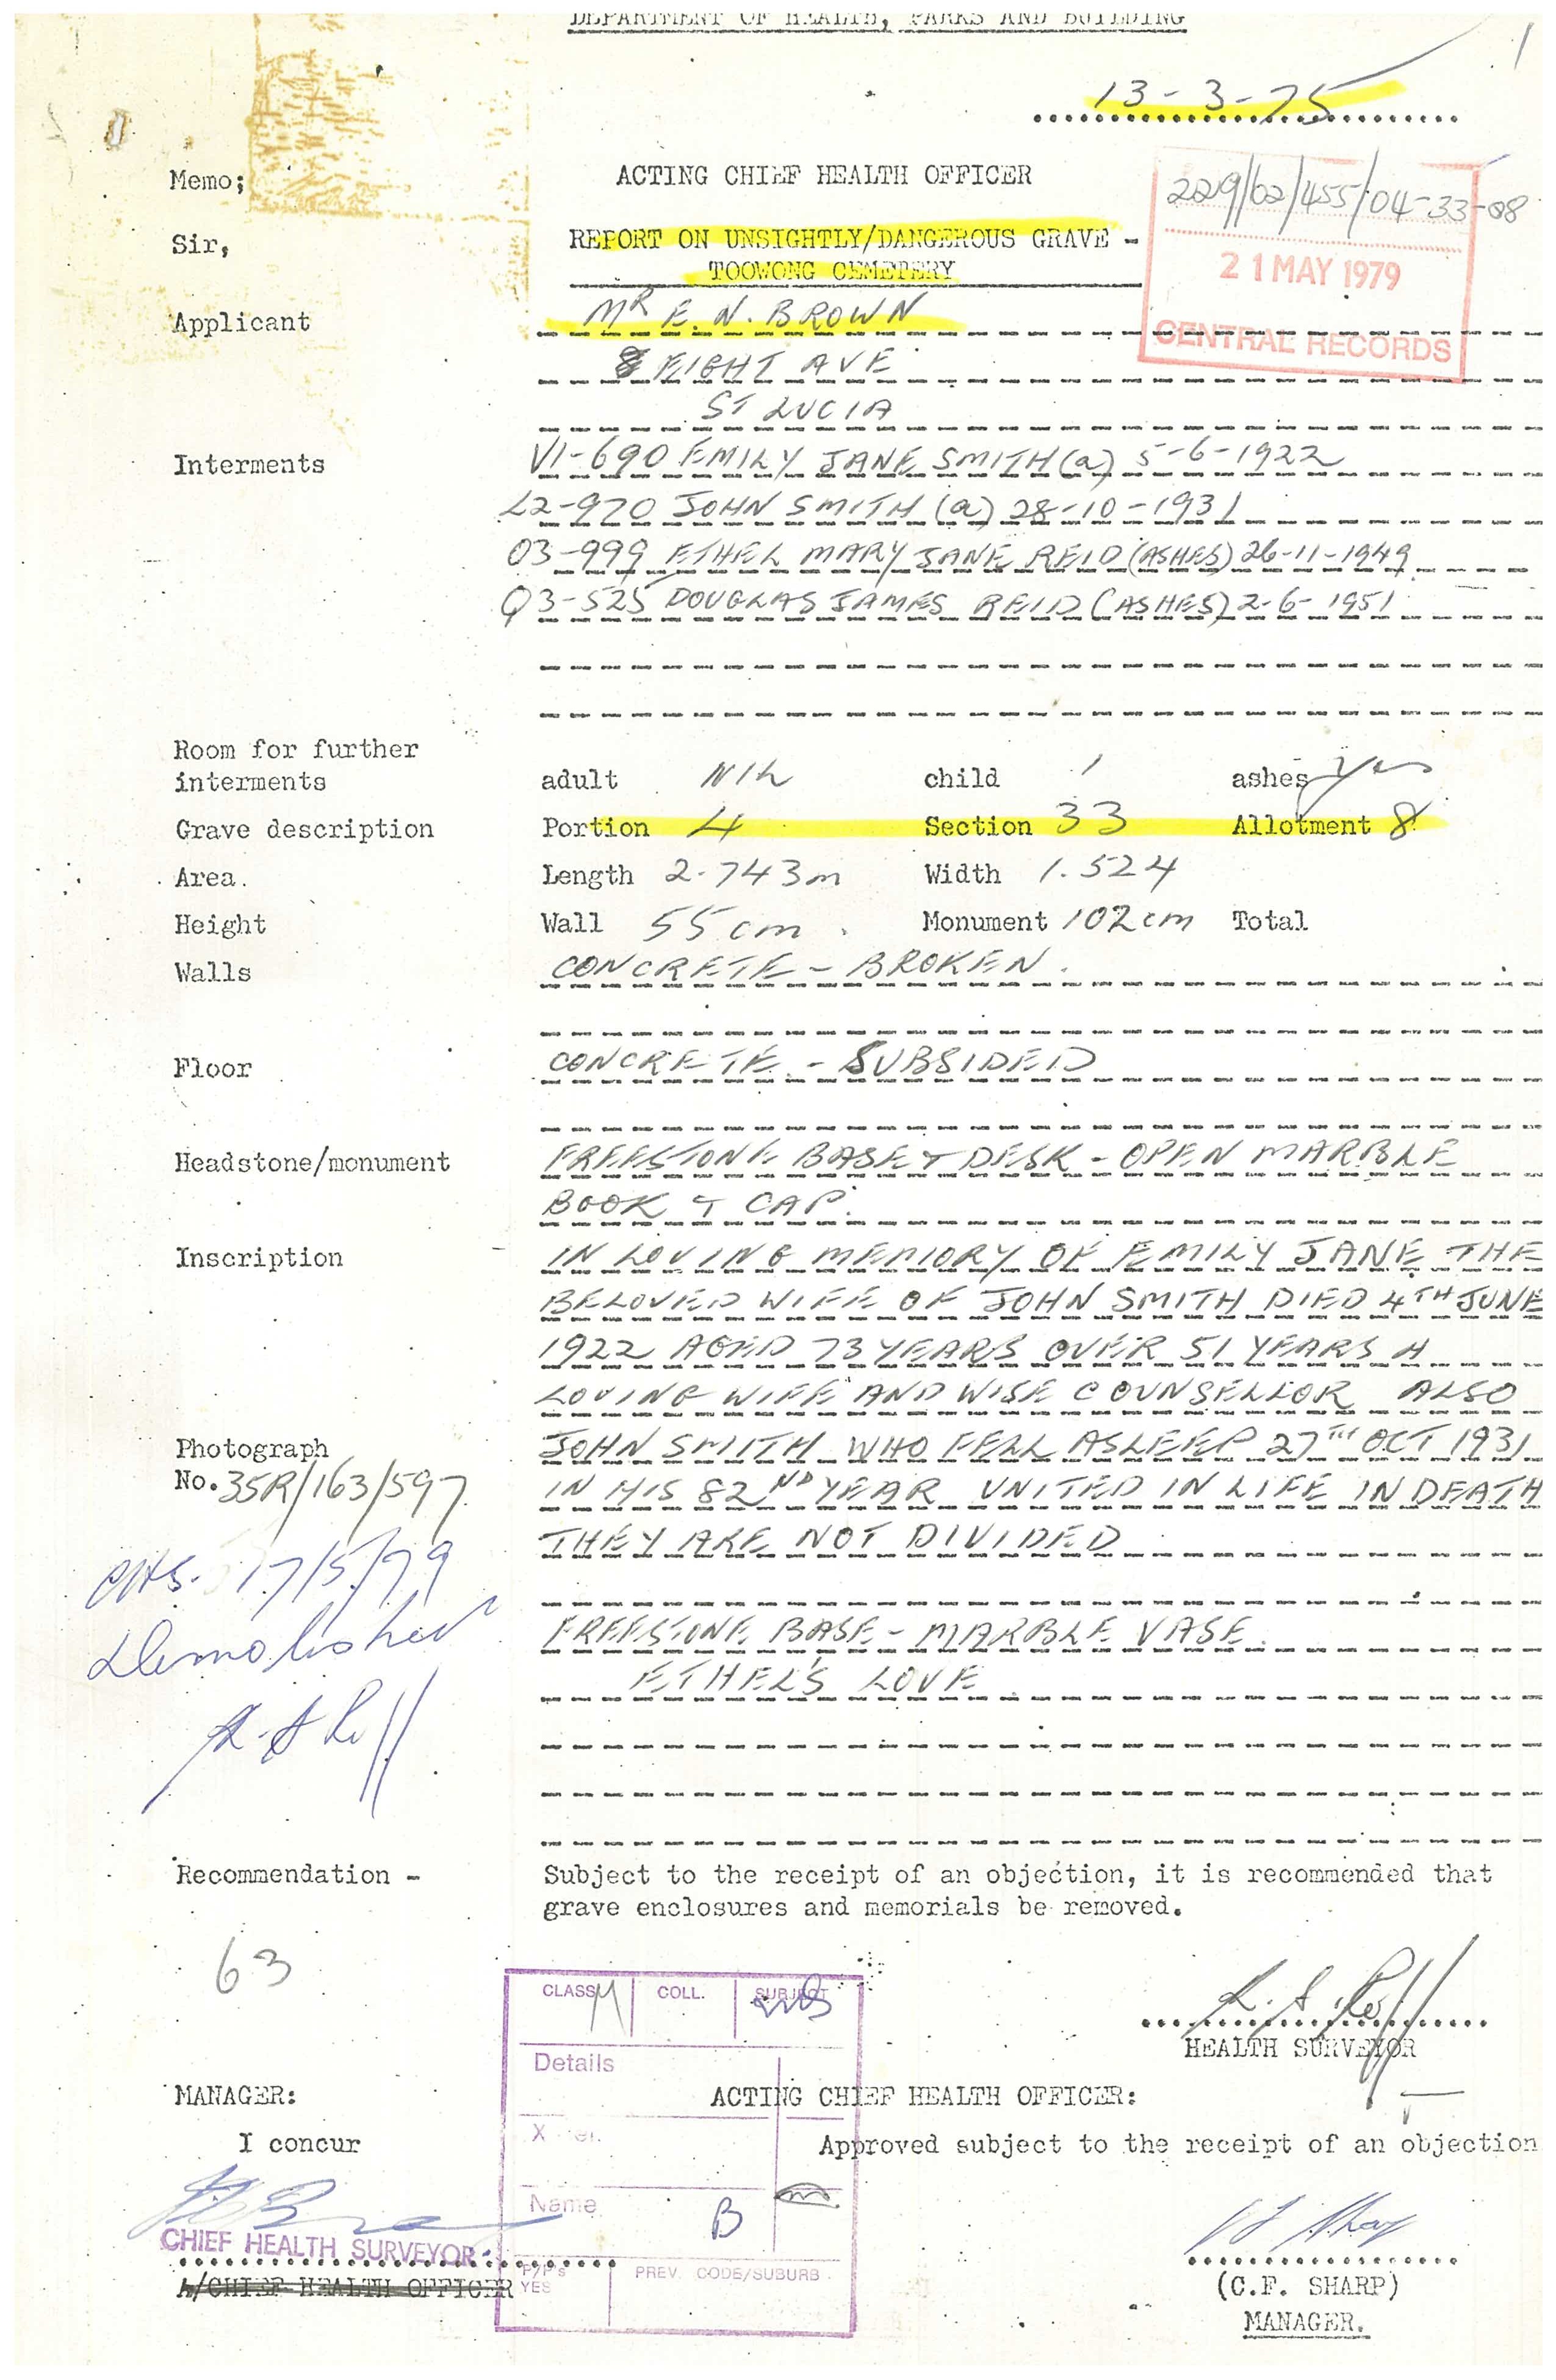 DEPARTMENT OF HEALTH, PARKS AND BUILDING
1
13-3-75
Memo; ACTING CHIEF HEALTH OFFICER
229/62/455/04-33-08
Sir, REPORT ON UNSIGHTLY/DANGEROUS GRAVE -
TOOWONG CEMETERY
21 MAY 1979
CENTRAL RECORDS
Applicant MR E. N. BROWN
8 EIGHT AVE
ST LUCIA
Interments V1-690 EMILY JANE SMITH (a) 5-6-1922
L2-970 JOHN SMITH (a) 28-10-1931
O3-999 ETHEL MARY JANE REID (ASHES) 26-11-1949
Q3-525 DOUGLAS JAMES REID (ASHES) 2-6-1951
Room for further
interments adult NIL child 1 ashes Yes
Grave description Portion 4 Section 33 Allotment 8
Area. Length 2.743m Width 1.524
Height Wall 55cm. Monument 102cm Total
Walls CONCRETE - BROKEN.
Floor CONCRETE - SUBSIDED
Headstone/monument FREESTONE BASE & DESK - OPEN MARBLE
BOOK & CAP.
Inscription IN LOVING MEMORY OF EMILY JANE THE
BELOVED WIFE OF JOHN SMITH DIED 4TH JUNE
1922 AGED 73 YEARS OVER 51 YEARS A
LOVING WIFE AND WISE COUNSELLOR ALSO
Photograph JOHN SMITH WHO FELL ASLEEP 27TH OCT 1931
No. 35R/163/597 IN HIS 82ND YEAR UNITED IN LIFE IN DEATH
THEY ARE NOT DIVIDED
17/5/79
Demolished
FREESTONE BASE - MARBLE VASE
ETHEL'S LOVE
Recommendation - Subject to the receipt of an objection, it is recommended that
grave enclosures and memorials be removed.
63
CLASS M COLL. SUBJECT
HEALTH SURVEYOR
Details
MANAGER: ACTING CHIEF HEALTH OFFICER:
I concur Approved subject to the receipt of an objection
Name B
CHIEF HEALTH SURVEYOR
A/CHIEF HEALTH OFFICER
P/P's
YES PREV. CODE/SUBURB
(C.F. SHARP)
MANAGER.